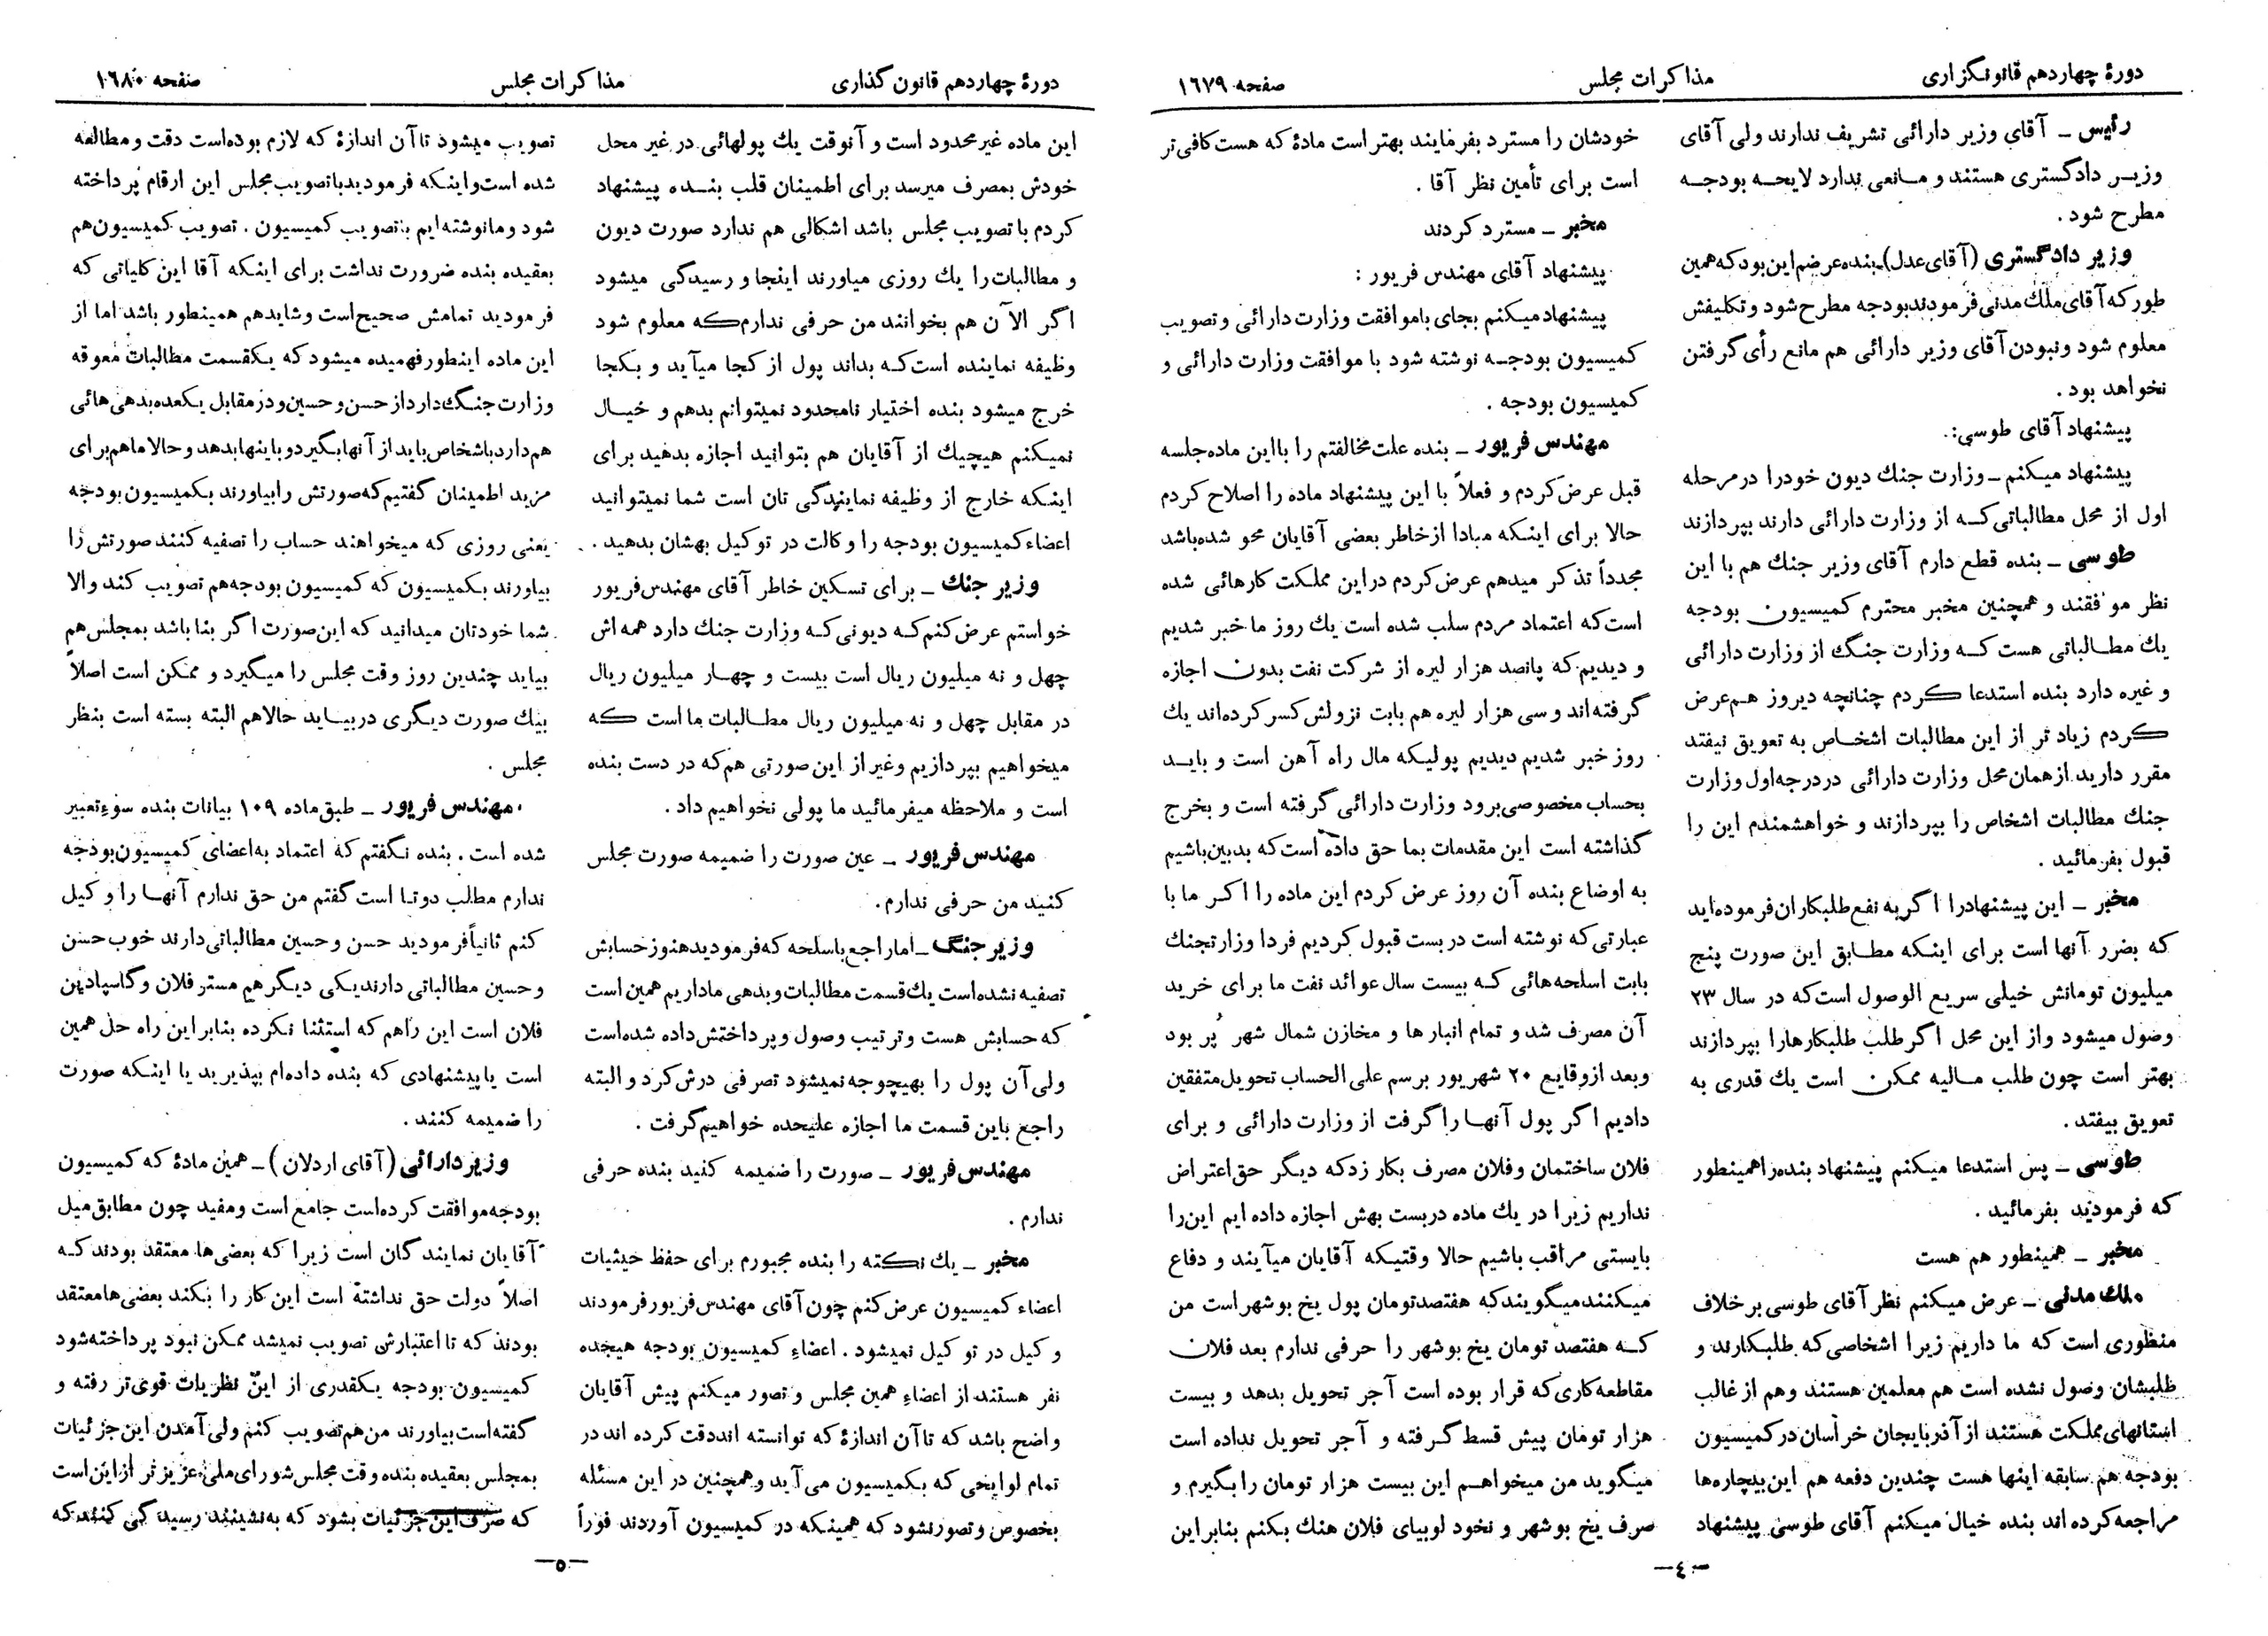 دورهٔ چهاردهم قانونگزاری
مذاکرات مجلس
صفحه ۱۶۷۹
رئیس ـ آقای وزیر دارائی تشریف ندارند ولی آقای
وزیـر دادگستری هستند و مـانعی ندارد لایحـه بودجـه
مطرح شود .
وزیر دادگستری (آقای عدل)ـ بنده عرضم این بود که همین
طور که آقای ملك مدنی فرمودند بودجه مطرح شود و تکلیفش
معلوم شود و نبودن آقای وزیر دارائی هم مانع رأی گرفتن
نخواهد بود .
پیشنهاد آقای طوسی:
پیشنهاد میکنم ـ وزارت جنك دیون خود را در مرحله
اول از محل مطالباتی کـه از وزارت دارائی دارند بپردازند
طوسی ـ بنده قطع دارم آقای وزیر جنك هم با این
نظر موافقند و همچنین مخبر محترم کمیسیون بودجه
یك مطـالباتی هست کـه وزارت جنگ از وزارت دارائی
و غیره دارد بنده استدعا کردم چنانچه دیروز هم عرض
کردم زیاد تر از این مطالبات اشخاص به تعویق نیفتد
مقرر دارید از همان محل وزارت دارائی در درجه اول وزارت
جنك مطالبات اشخاص را بپردازند و خواهشمندم این را
قبول بفرمائید .
مخبر ـ این پیشنهاد را اگر به نفع طلبکاران فرموده اید
که بضرر آنها است برای اینکه مطـابق این صورت پنج
میلیون تومانش خیلی سریع الوصول است که در سال ۲۳
وصول میشود و از این محل اگر طلب طلبکارها را بپردازند
بهتر است چون طلب مـالیه ممکن است یك قدری به
تعویق بیفتد .
طوسی ـ پس استدعا میکنم پیشنهاد بنده را همینطور
که فرمودید بفرمائید .
مخبر ـ همینطور هم هست
ملك مدنی ـ عرض میکنم نظر آقای طوسی بر خلاف
منظوری است که ما داریم زیرا اشخاصی که طلبکارند و
طلبشان وصول نشده است هم معلمین هستند و هم از غالب
استانهای مملکت هستند از آذربایجان خراسان در کمیسیون
بودجه هم سابقه اینها هست چندین دفعه هم این بیچاره ها
مراجعه کرده اند بنده خیال میکنم آقای طوسی پیشنهاد
خودشان را مسترد بفرمایند بهتر است مادهٔ که هست کافی تر
است برای تأمین نظر آقا .
مخبر ـ مسترد کردند
پیشنهاد آقای مهندس فریور :
پیشنهاد میکنم بجای با موافقت وزارت دارائی و تصویب
کمیسیون بودجـه نوشته شود با موافقت وزارت دارائی و
کمیسیون بودجه .
مهندس فریور ـ بنده علت مخالفتم را با این ماده جلسه
قبل عرض کردم و فعلاً با این پیشنهاد ماده را اصلاح کردم
حالا برای اینکه مبادا از خاطر بعضی آقایان محو شده باشد
مجدداً تذکر میدهم عرض کردم در این مملکت کارهائی شده
است که اعتماد مردم سلب شده است یك روز ما خبر شدیم
و دیدیم که پانصد هزار لیره از شرکت نفت بدون اجازه
گرفته اند و سی هزار لیره هم بابت نزولش کسر کرده اند یك
روز خبر شدیم دیدیم پولیکه مال راه آهن است و بایـد
بحساب مخصوصی برود وزارت دارائی گرفته است و بخرج
گذاشته است این مقدمات بما حق داده است که بدبین باشیم
به اوضاع بنده آن روز عرض کردم این ماده را اگـر ما با
عبارتی که نوشته است دربست قبول کردیم فردا وزارتجنك
بابت اسلحه هائی کـه بیست سال عوائد نفت ما برای خرید
آن مصرف شد و تمام انبار ها و مخازن شمال شهر پُر بود
و بعد از وقایع ۲۰ شهریور برسم علی الحساب تحویل متفقین
دادیم اگر پول آنهـا را گرفت از وزارت دارائی و برای
فلان ساختمان و فلان مصرف بکار زد که دیگر حق اعتراض
نداریم زیرا در یك ماده دربست بهش اجازه داده ایم این را
بایستی مراقب باشیم حالا وقتیکه آقایان میآیند و دفاع
میکنند میگویند که هفتصد تومان پول یخ بوشهر است من
کـه هفتصد تومان یخ بوشهر را حرفی ندارم بعد فلان
مقاطعه کاری که قرار بوده است آجر تحویل بدهد و بیست
هزار تومان پیش قسط گـرفته و آجر تحویل نداده است
میگوید من میخواهـم این بیست هزار تومان را بگیرم و
صرف یخ بوشهر و نخود لوبیای فلان هنك بکنم بنابراین
ـ٤ـ
دورهٔ چهاردهم قانون گذاری
مذاکرات مجلس
صفحه ۱۶۸۰
این ماده غیر محدود است و آنوقت یك پولهائی در غیر محل
خودش بمصرف میرسد برای اطمینان قلب بنـده پیشنهاد
کردم با تصویب مجلس باشد اشکالی هم ندارد صورت دیون
و مطالبات را یك روزی میاورند اینجا و رسیدگی میشود
اگر الآن هم بخوانند من حرفی ندارم که معلوم شود
وظیفه نماینده است کـه بداند پول از کجا میآید و بکجا
خرج میشود بنده اختیار نامحدود نمیتوانم بدهم و خیـال
نمیکنم هیچیك از آقایان هم بتوانید اجازه بدهید برای
اینکه خارج از وظیفه نمایندگی تان است شما نمیتوانید
اعضاء کمیسیون بودجه را وکالت در توکیل بهشان بدهید .
وزیر جنك ـ برای تسکین خاطر آقای مهندس فریور
خواستم عرض کنم کـه دیونی کـه وزارت جنك دارد همه اش
چهل و نه میلیون ریال است بیست و چهـار میلیون ریال
در مقابل چهل و نه میلیون ریال مطـالبات ما است که
میخواهیم بپردازیم و غیر از این صورتی هم که در دست بنده
است و ملاحظه میفرمائید ما پولی نخواهیم داد .
مهندس فریور ـ عین صورت را ضمیمه صورت مجلس
کنید من حرفی ندارم .
وزیر جنگ ـ اما راجع باسلحه که فرمودید هنوز حسابش
تصفیه نشده است یك قسمت مطالبات و بدهی ما داریم همین است
که حسابش هست و ترتیب وصول و پرداختش داده شده است
ولی آن پول را بهیچوجه نمیشود تصرفی درش کرد و البته
راجع باین قسمت ما اجازه علیحده خواهیم گرفت .
مهندس فریور ـ صورت را ضمیمه کنید بنده حرفی
ندارم .
مخبر ـ یك نکته را بنده مجبورم برای حفظ حیثیات
اعضاء کمیسیون عرض کنم چون آقای مهندس فریور فرمودند
وکیل در توکیل نمیشود . اعضاء کمیسیون بودجه هیجده
نفر هستند از اعضاء همین مجلس و تصور میکنم پیش آقایان
واضح باشد که تا آن اندازهٔ که توانسته اند دقت کرده اند در
تمام لوایحی که بکمیسیون می آید و همچنین در این مسئله
بخصوص و تصور نشود که همینکه در کمیسیون آوردند فوراً
تصویب میشود تا آن اندازهٔ که لازم بوده است دقت و مطالعه
شده است و اینکه فرمودید با تصویب مجلس این ارقام پُرداخته
شود و ما نوشته ایم با تصویب کمیسیون . تصویب کمیسیون هم
بعقیده بنده ضرورت نداشت برای اینکه آقا این کلیاتی که
فرمودید تمامش صحیح است و شاید هم همینطور باشد اما از
این ماده اینطور فهمیده میشود که یکقسمت مطالبات معوقه
وزارت جنگ دارد از حسن و حسین و در مقابل یکعده بدهی هائی
هم دارد باشخاص باید از آنها بگیرد و باینها بدهد و حالا ما هم برای
مزید اطمینان گفتیم که صورتش را بیاورند بکمیسیون بودجه
یعنی روزی که میخواهند حساب را تصفیه کنند صورتش را
بیاورند بکمیسیون که کمیسیون بودجه هم تصویب کند والا
شما خودتان میدانید که این صورت اگر بنا باشد بمجلس هم
بیاید چندین روز وقت مجلس را میگیرد و ممکن است اصلاً
بیك صورت دیگری دربیـاید حالاهم البته بسته است بنظر
مجلس .
مهندس فریور ـ طبق ماده ۱۰۹ بیانات بنده سوء تعبیر
شده است . بنده نگفتم که اعتماد به اعضای کمیسیون بودجه
ندارم مطلب دو تا است گفتم من حق ندارم آنهـا را وکیل
کنم ثانیاً فرمودید حسن و حسین مطالباتی دارند خوب حسن
و حسین مطالباتی دارند یکی دیگر هم مستر فلان و گاسپادین
فلان است این را هم که استثنا نکرده بنابر این راه حل همین
است یا پیشنهادی که بنده داده ام بپذیرید یا اینکه صورت
را ضمیمه کنند .
وزیر دارائی (آقای اردلان) ـ همین مادهٔ که کمیسیون
بودجه موافقت کرده است جامع است و مفید چون مطابق میل
آقایان نمایندگان است زیرا که بعضی ها معتقد بودند کـه
اصلاً دولت حق نداشته است این کار را بکند بعضی ها معتقد
بودند که تا اعتبارش تصویب نمیشد ممکن نبود پرداخته شود
کمیسیون بودجه یکقدری از این نظریات قوی تر رفته و
گفته است بیاورند من هم تصویب کنم ولی آمدن این جزئیات
بمجلس بعقیده بنده وقت مجلس شورای ملی عزیزتر از این است
که صرف این جزئیات بشود که به نشینند رسیدگی کنند که
ـ٥ـ